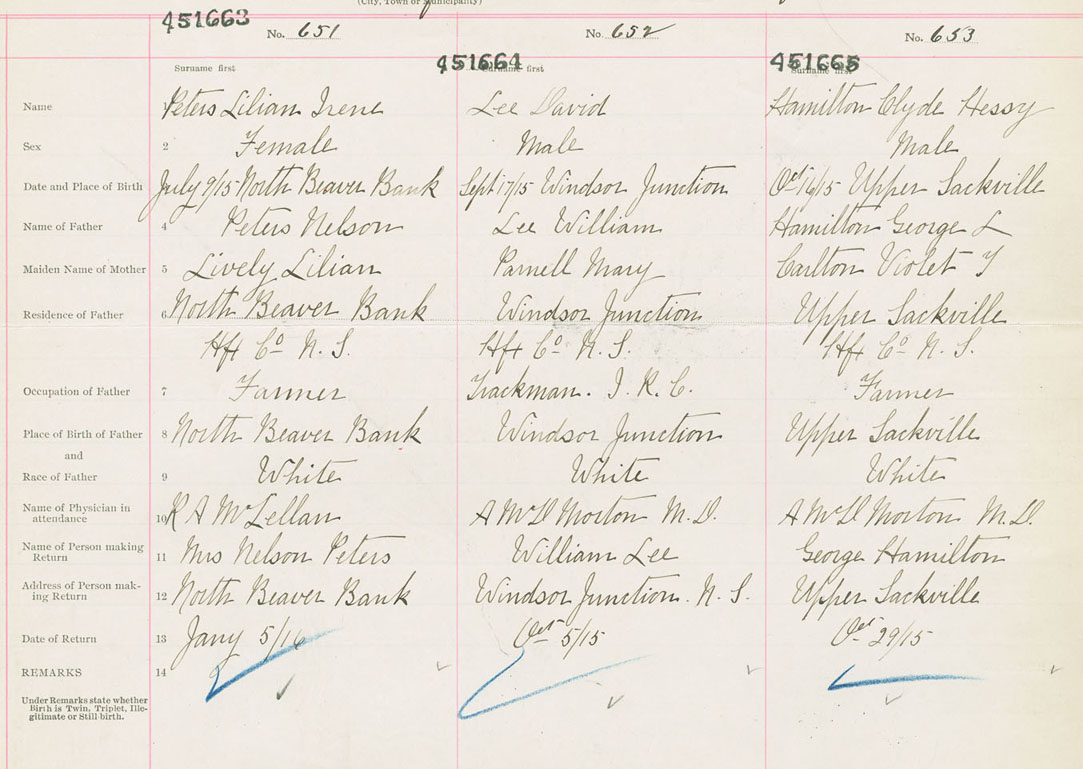 (City, Town or Municipality)
451663 No. 651 451664 No. 652 451665 No. 653
Surname first Surname first Surname first
Name 1 Peters Lilian Irene Lee David Hamilton Clyde Hessy
Sex 2 Female Male Male
Date and Place of Birth July 9/15 North Beaver Bank Sept 17/15 Windsor Junction Oct 16/15 Upper Sackville
Name of Father 4 Peters Nelson Lee William Hamilton George L
Maiden Name of Mother 5 Lively Lilian Parnell Mary Carlton Violet
Residence of Father 6 North Beaver Bank Windsor Junction Upper Sackville
Hfx Co N. S. Hfx Co N. S. Hfx Co N. S.
Occupation of Father 7 Farmer Trackman. I. R. C. Farmer
Place of Birth of Father 8 North Beaver Bank Windsor Junction Upper Sackville
and
Race of Father 9 White White White
Name of Physician in
attendance 10 R A McLellan A McD Morton M.D. A McD Morton M.D.
Name of Person making
Return 11 Mrs Nelson Peters William Lee George Hamilton
Address of Person mak-
ing Return 12 North Beaver Bank Windsor Junction. N. S. Upper Sackville
Date of Return 13 Jany 5/16 Oct 5/15 Oct 29/15
REMARKS 14
Under Remarks state whether
Birth is Twin, Triplet, Ille-
gitimate or Still-birth.